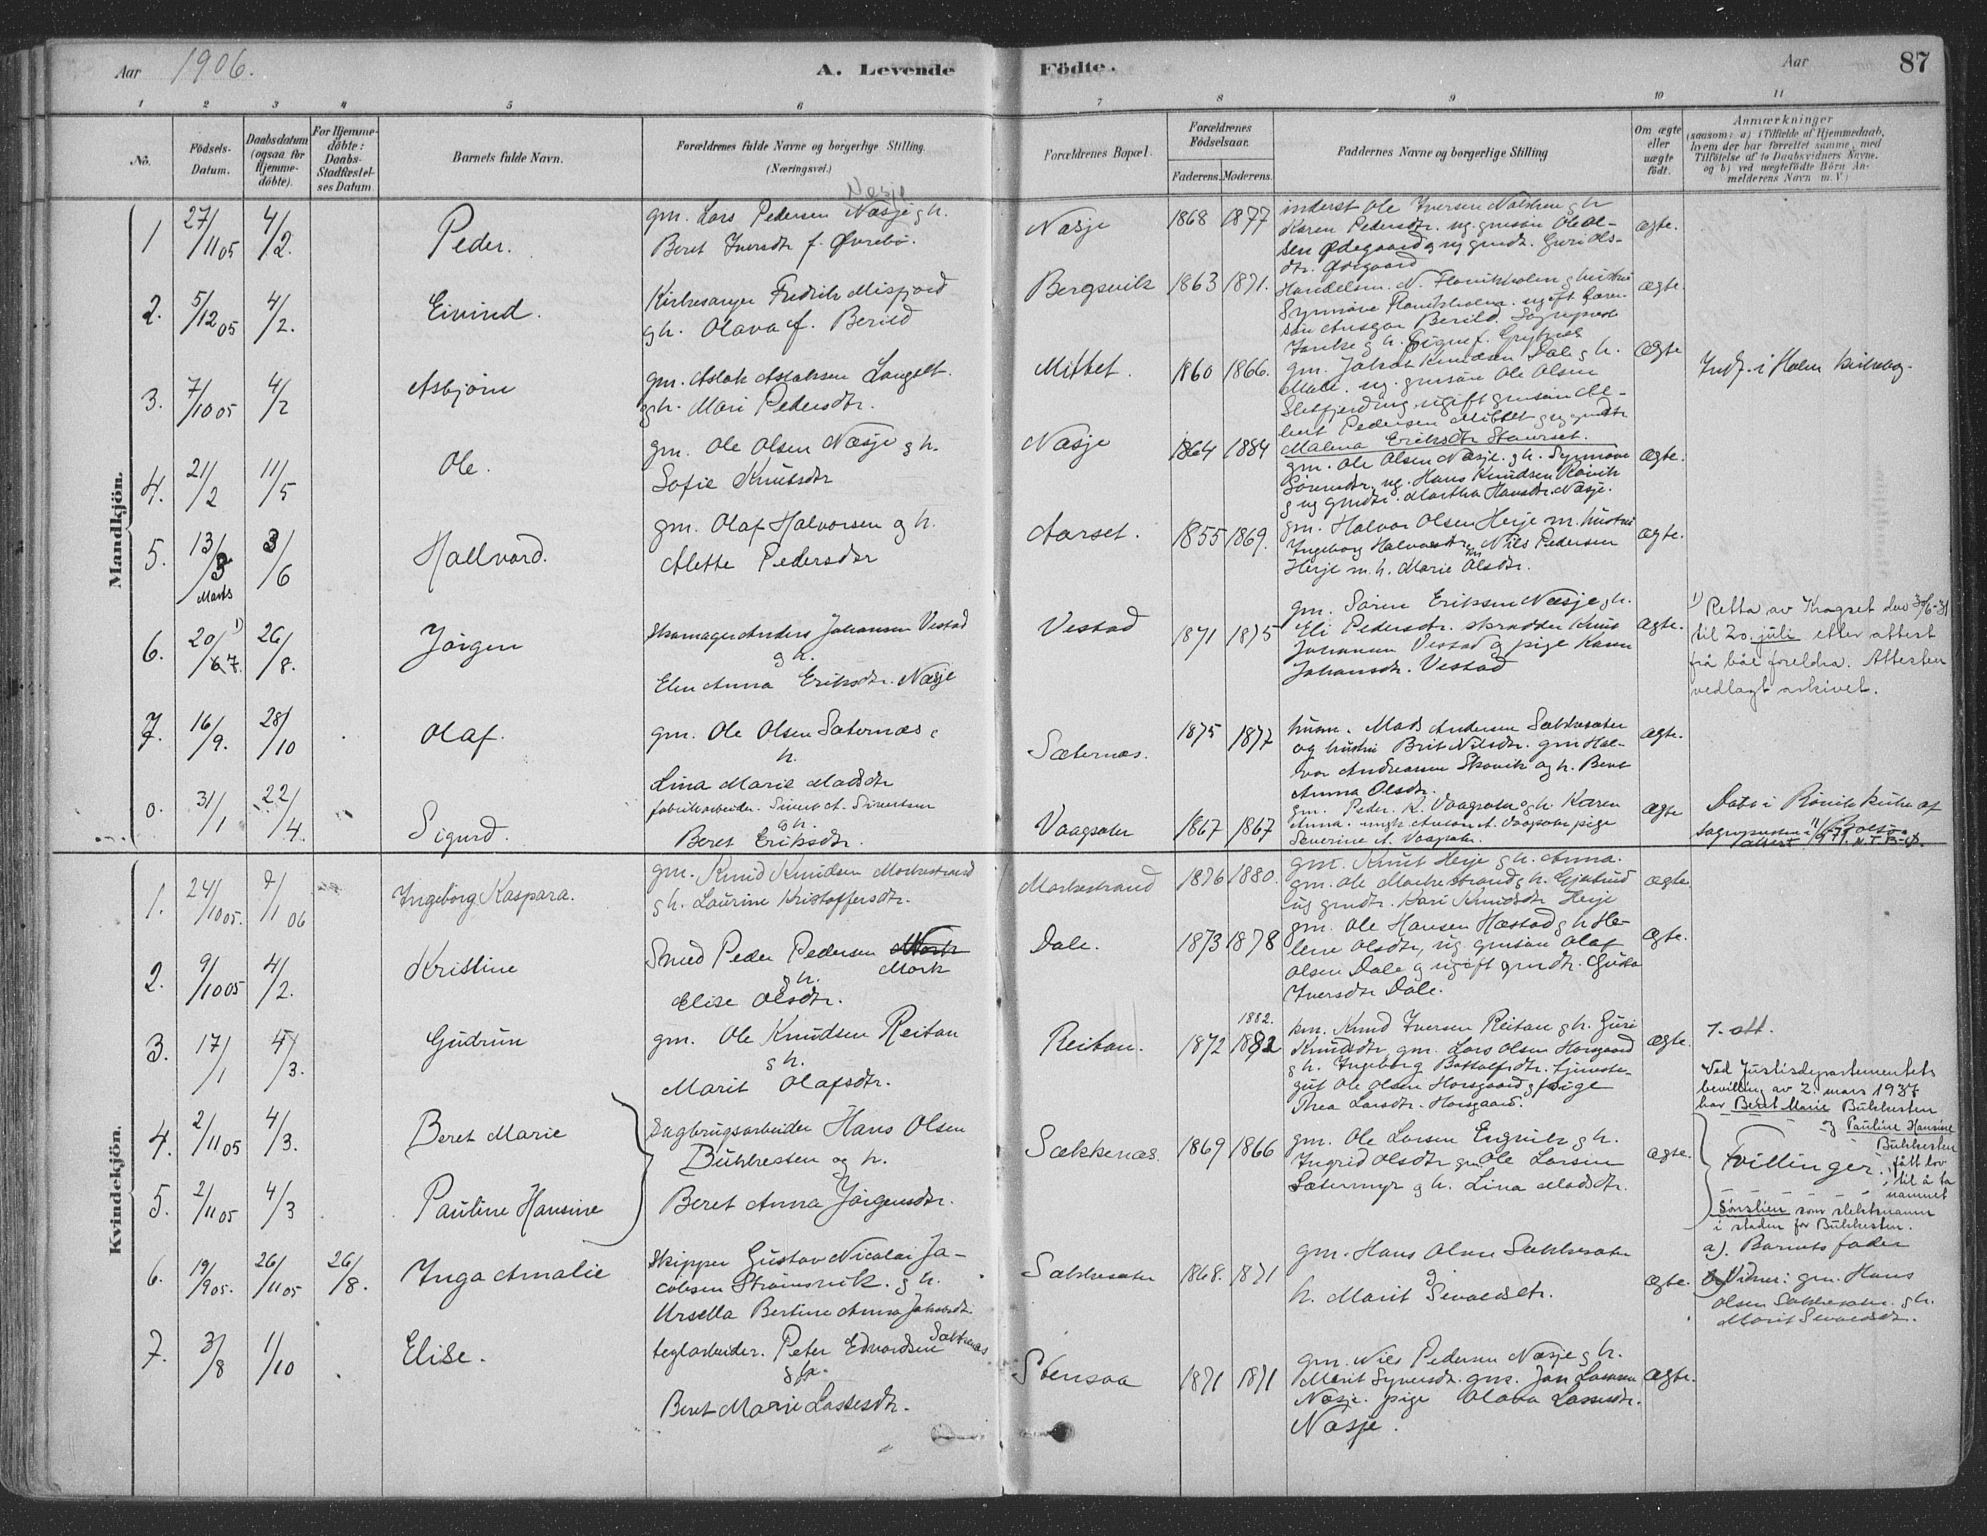 Aar 1906. A. Levende Födte. Aar 87
1 2 3 4 5 6 7 8 9 10 11
No.
Födsels-Datum.
Daabsdatum (ogsaa for Hjemme-döbte).
For Hjemme-döbte: Daabs-Stadfæstel-ses Datum
Barnets fulde Navn.
Forældrenes fulde Navne og borgerlige Stilling. (Næringsvei.)
Forældrenes Bopæl.
Forældrenes Födselsaar.
Faderens. Moderens.
Faddernes Navne og borgerlige Stilling
Om ægte eller uægte födt.
Anmærkninger
(saasom: a) i Tilfælde af Hjemmedaab,
hvem der har forrettet samme, med
Tilföielse af to Daabsvidners Navne.
og b) ved uægtefödte Börn An-
melderens Navn m. V.)
Mandkjön.
1 27/11 05 4/2. Peder.
Næsje
gm. Lars Pedersen Næsje g h.
Beret Iversdtr f. Øvrebö.
Næsje 1868 1877
inderst Ole Iversen g h
Karen Pedersdtr. ug. gmsön Ole Ol-
sen Ødegaard og ug gmdtr. Guri Ols-
dtr. ægte.
2. 5/12 05 4/2. Eivind.
Kirkesanger Fredrik Misfjord
g h. Olava f. Berild
Bergsvik 1863 1871.
Handelsm. N. Flovikholm g hustru
Synnöve Flovikholm. ugift
sön Ansgar Berild.
ægte.
3. 7/10 05 4/2 Asbjörn
gm. Aslak Aslaksen Langset
g h. Mari Pedersdtr.
Mittet. 1860 1866.
gm. Jakob Knudsen Dale g h.
ug. gmsön Ole Olsen
ugift gmsön Al-
bert Pedersen Mittet g ug gmdtr
Malena Eriksdtr Staurset.
ægte
Indf. i Holm kirkebog.
4. 21/2 11/5 Ole.
gm. Ole Olsen Næsje g h.
Sofie Knutsdtr
Næsje 1864 1884
gm. Ole Olsen Næsje. g h. Synnöve
Sörensdtr, ug. Hans Knudsen Rövik
g ug gmdtr. Martha Hansdtr. Næsje.
ægte.
5. 13/3 Marts 3/6 Hallvard.
gm. Olaf Halvorsen og h.
Alette Pedersdtr
Aarset. 1855 1869.
gm. Halvor Olsen Herje m. hustru
Ingeborg Halvorsdtr, gm Nils Pedersen
Herje m. h. Marie Olsdtr.
ægte.
6. 20/6 7. 1) 26/8. Jörgen
Skomager Anders Johansen Vestad
g h.
Elen Anna Eriksdtr. Næsje
Vestad 1871 1875
gm. Sören Eriksen Næsje g h.
Eli Pedersdtr. skrædder Knut
Johansen Vestad og pige Karen
Johansdtr. Vestad
ægte.
1) Retta av Kragset den 30/6-31
til 20. juli etter attest
frå båe foreldra. Attesten
vedlagt arkivet.
7. 16/9. 28/10 Olaf.
gm. Ole Olsen Sæternæs
h.
Lina Marie Madsdtr
Sæternæs. 1875 1877
husm. Mads Andersen Sækkesæter
og hustru Brit Nilsdtr. gm Hal-
vor Andreassen Skovik og h. Beret
Anna Olsdtr.
ægte.
0. 31/1 22/4. Sigurd.
fabrikarbeider. Sivert A. Sivertsen
g h.
Beret Eriksdtr.
Vaagsæter 1867 1867
Gm. Peder K. Vaagsæter g h. Karen
Anna. Anton A. Vaagsæter pige
Severine A. Vaagsæter.
ægte
Döbt i Rövik kirke af
sognepresten i
Kvindekjön.
1. 24/10 05. 7/1 06 Ingeborg Kaspara.
gm. Knud Knudsen Morkestrand
g h. Laurine Kristoffersdtr.
Morkestrand 1876 1880.
gm. Knut Herje g h. Anna.
gm. Ole Morkestrand g h. Gjertrud
ug gmdtr. Kari Knudsdtr Herje
ægte
2. 9/10 05 4/2. Kristine
Smed Peder Pedersen Mork
g h. Mork
Elise Olsdtr.
Dale. 1873 1878
gm. Ole Hansen Hæstad g h He-
lene Olsdtr, ug gmsön Olaf
Olsen Dale g ugift gmdtr.
Iversdtr Dale.
ægte.
3. 17/1 4/3. Gudrun
gm. Ole Knudsen Reitan
g h.
Marit Olafsdtr.
Reitan. 1872 1882. 1882
km. Knud Iversen Reitan g h. Guri
Knudsdtr, gm. Lars Olsen Horsgaard
g h. Ingeborg Bottolfsdtr. tjeneste-
gut Ole Olsen Horsgaard g pige
Thea Larsdtr. Horsgaard.
ægte.
7. att.
Ved Justisdepartementets
bevilling av 2. mars 1937
har Beret Marie Bukkesten
og Pauline Hansine
Bukkesten
fått lov
til å ta
navnet
Sörslien som slektsnamn
i staden for Bukkesten.
4. 2/11 05 4/3. Beret Marie
Dagbrugsarbeider Hans Olsen
Bukkesten og h.
Beret Anna Jörgensdtr.
5. 2/11 05 4/3 Pauline Hansine
Sækkenæs. 1869 1866
gm. Ole Larsen Engvik g h.
Ingrid Olsdtr gm Ole Larsen
Sætermyr g h. Lina Madsdtr.
ægte.
Tvillinger.
6. 19/9 05. 26/11 05 26/8. Inga Amalie
Skipper Gustav Nicolai Ja-
cobsen Strömsvik. g h.
Ursella Bertine Anna Jakobsdtr.
Sækkesæter 1868. 1871
gm. Hans Olsen Sækkesæter
g
h. Marit Sevaldsdtr.
ægte.
a). Barnets fader
b) Vidner: gm. Hans
Olsen Sækkesæter. g h.
Marit Sevaldsdtr.
7. 3/8 1/10 Elise.
teglarbeider. Peter Edvardsen Sækkenæs
g h.
Beret Marie Lassesdtr.
Stensaa 1871 1871
gm. Nils Pedersen Næsje g h.
Marit Syversdtr. gms. Jon Lassen
Næsje. pige Olava Lassesdtr.
Næsje.
ægte.